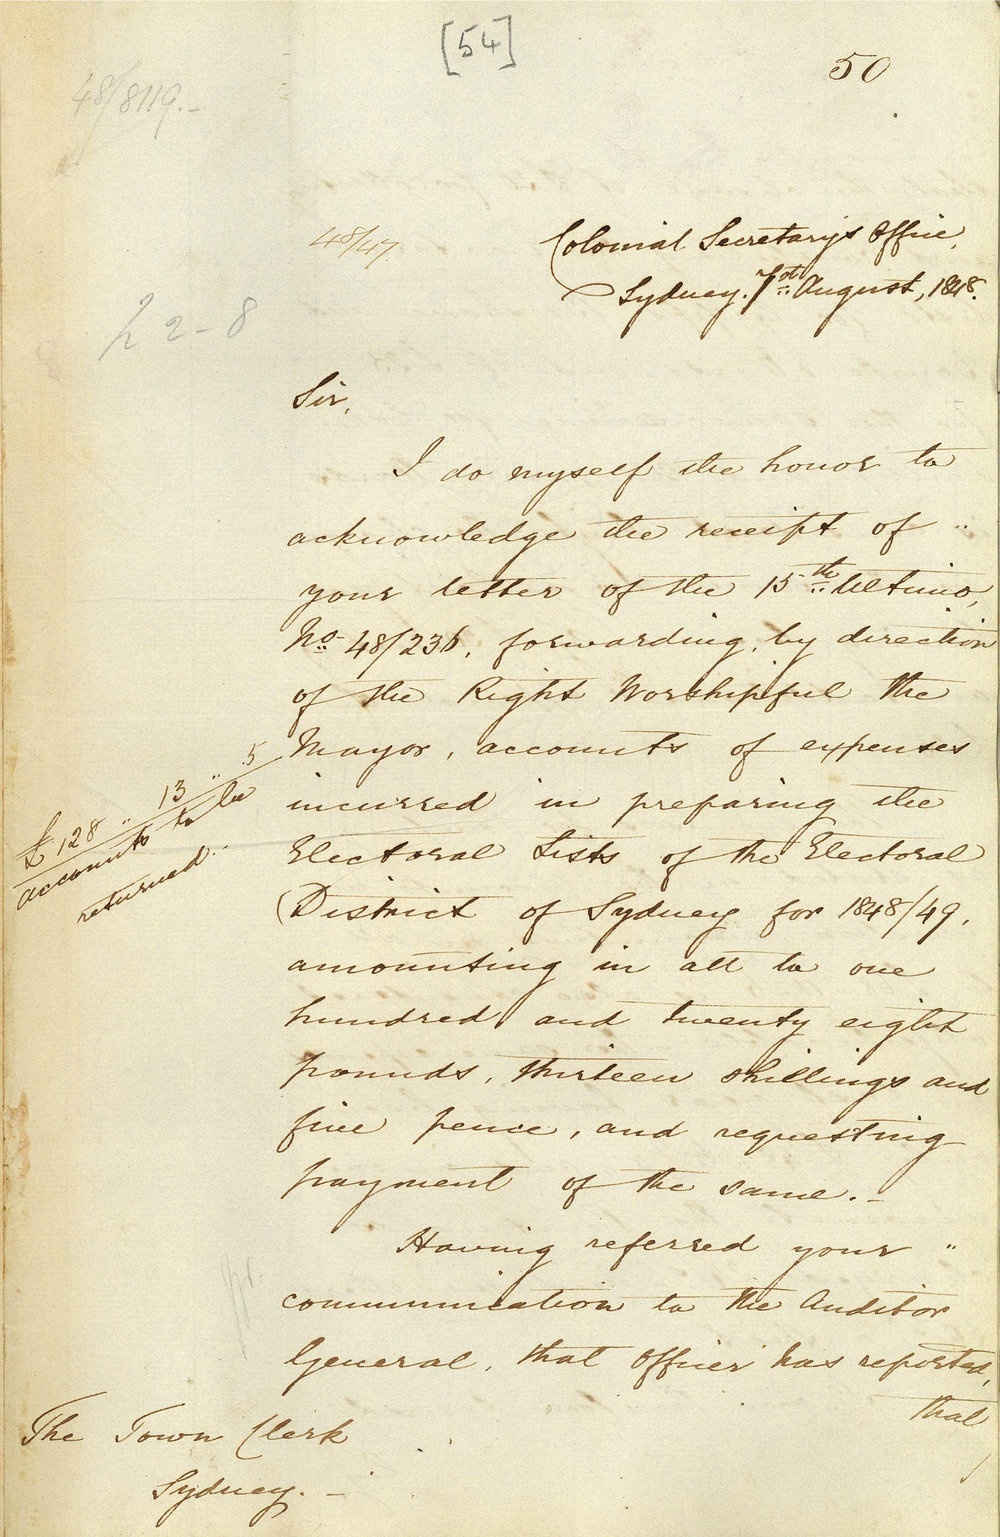 [54]
50
48/8119.-
48/47.
Colonial Secretary's Office,
Sydney. 1st August, 1848.
2-8
Sir,
I do myself the honor to
acknowledge the receipt of ..
your letter of the 15th Ultimo,
No. 48/236, forwarding, by direction
of the Right Worshipful the
Mayor, accounts of expenses
incurred in preparing the
Electoral Lists of the Electoral
District of Sydney for 1848/49,
amounting in all to one
hundred and twenty eight
pounds, thirteen shillings and
five pence, and requesting
payment of the same.-
£128 .. 13 .. 5
accounts to be
returned.
Having referred your "
communication to the Auditor
General, that Officer has reported,
that
The Town Clerk
Sydney.-